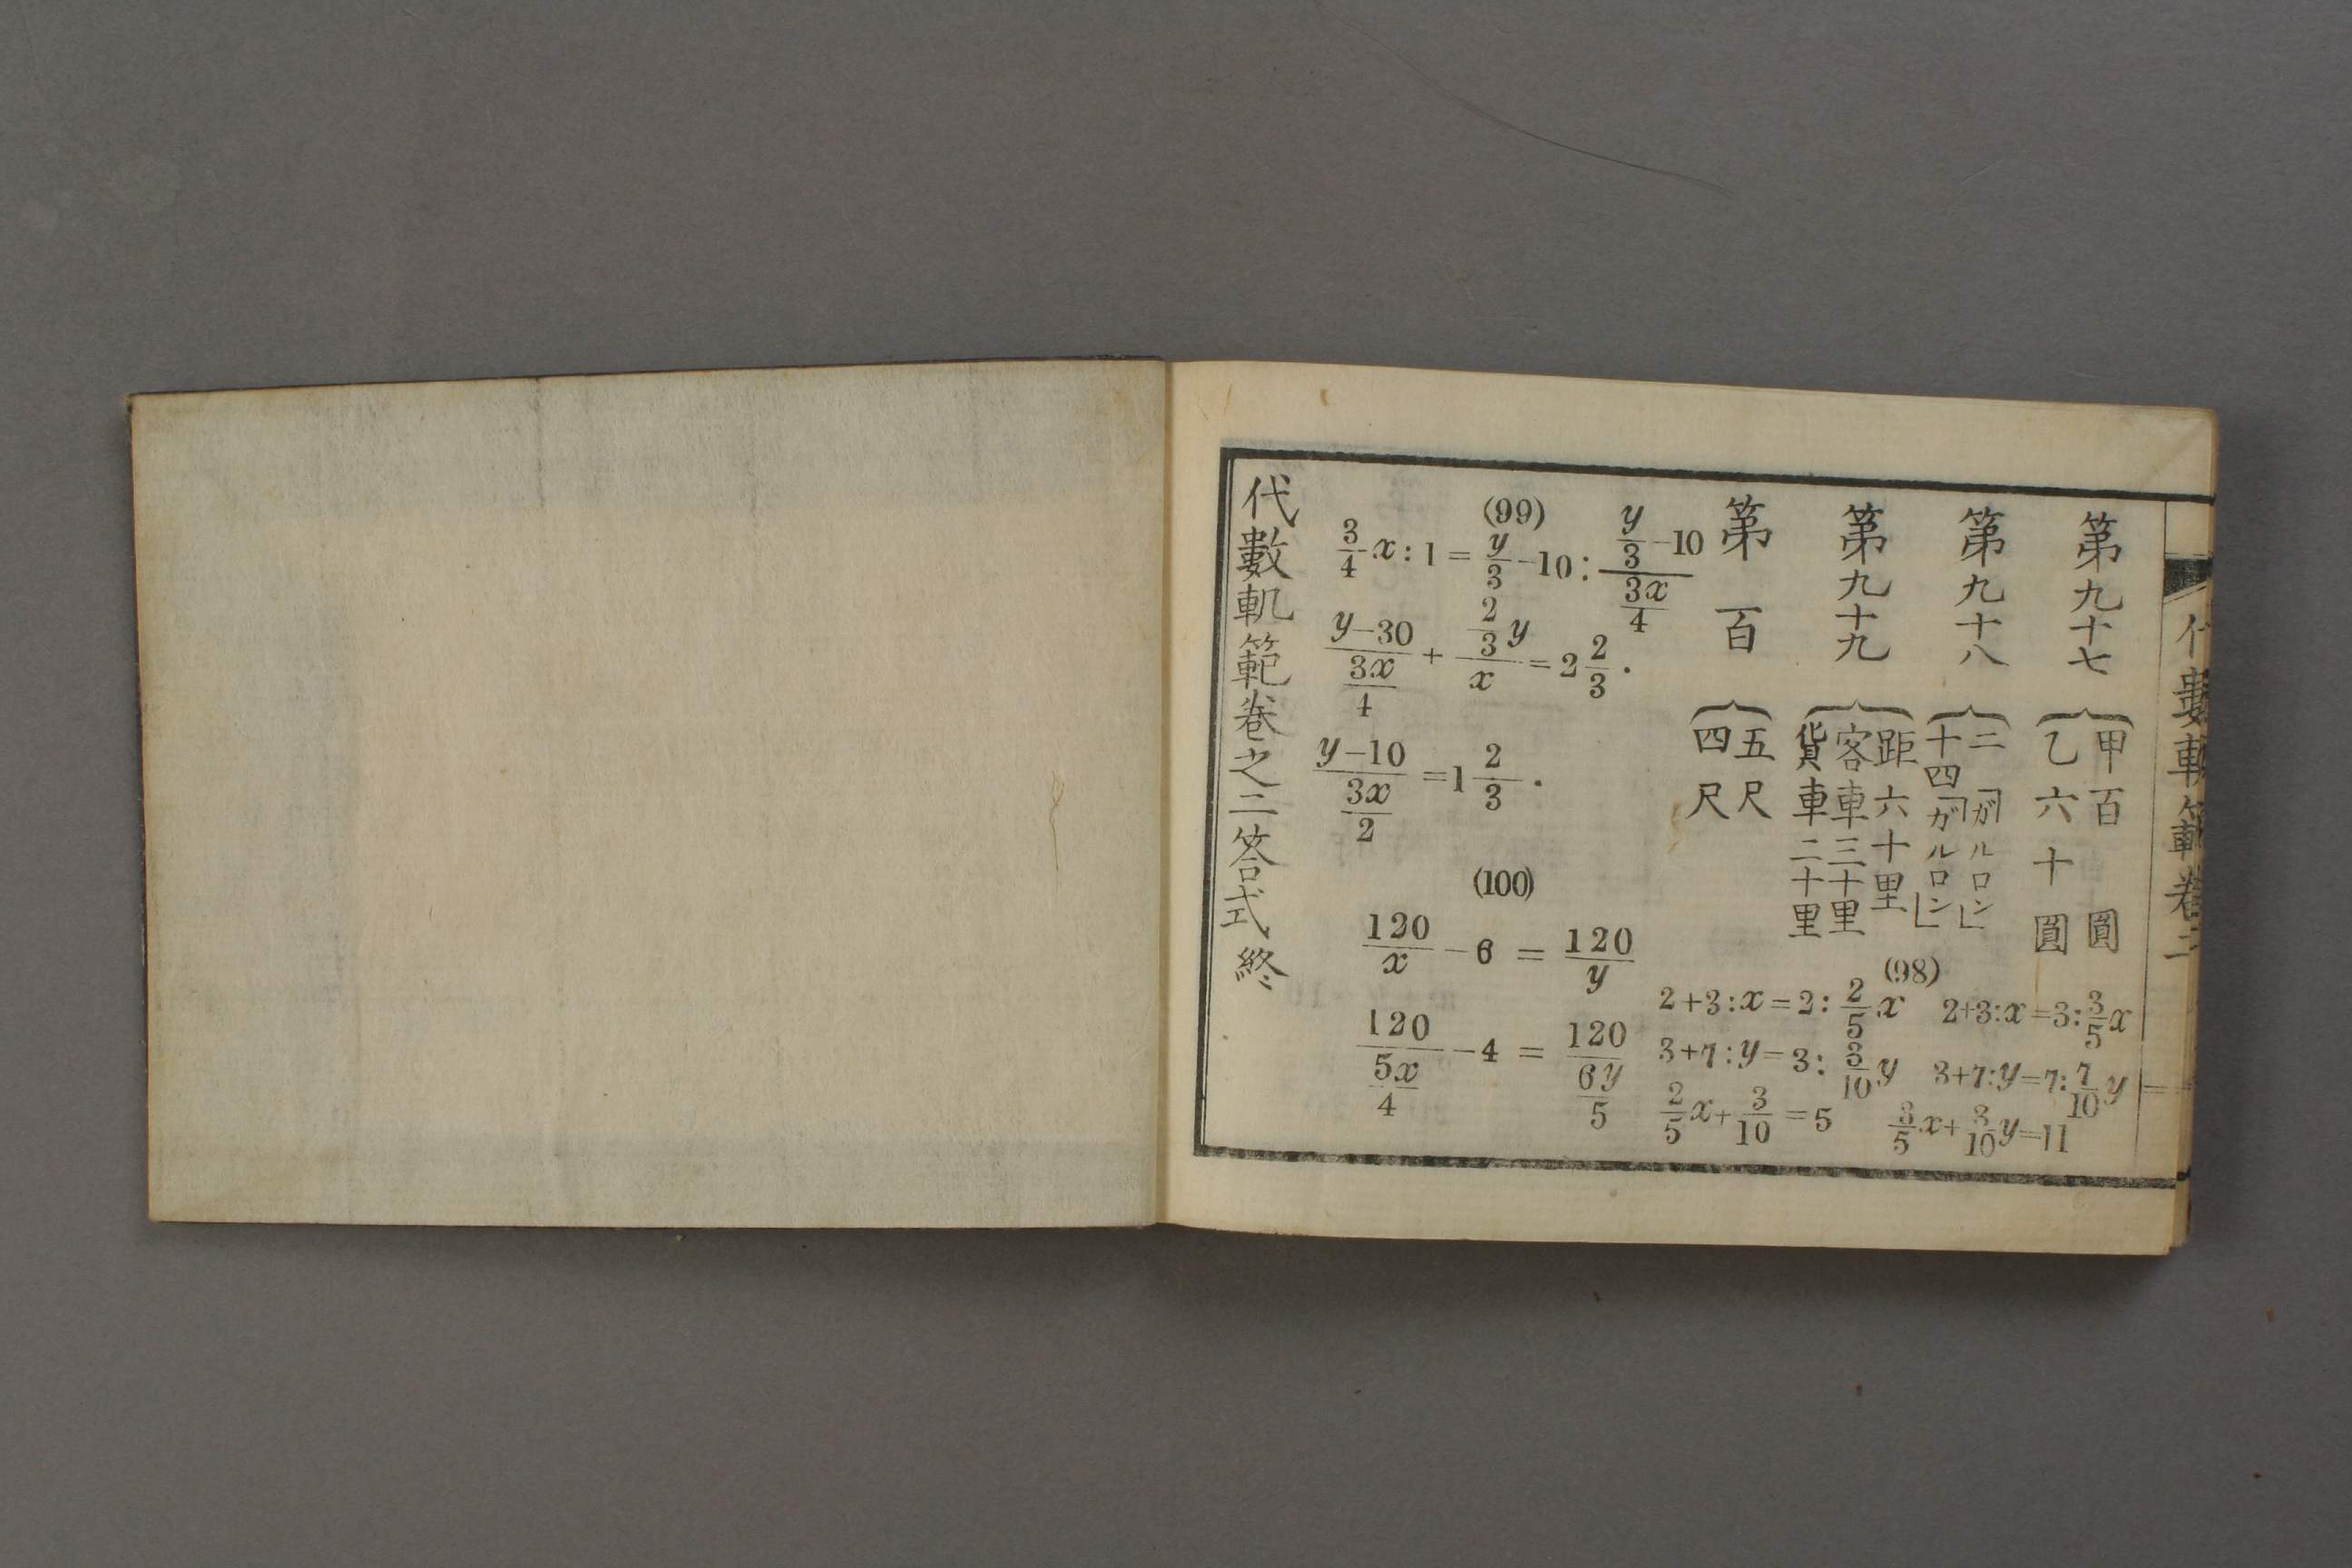 第九十七 甲百圓 乙六十圓
第九十八 二「ガルロン」 十四「ガルロン」
第九十九 距六十里 客車三十里 貨車二十里
第百 五尺 四尺
(98)
2+3:x=3:3/5x
3+7:y=7:7/10y
3/5x+3/10y=11
2+3:x=2:2/5x
3+7:y=3:3/10y
2/5x+3/10=5
(99)
3/4x:1=y/3-10:(y/3-10)/(3x/4)
(y-30)/(3x/4)+(2/3y)/x=2 2/3.
(y-10)/(3x/2)=1 2/3.
(100)
120/x-6=120/y
120/(5x/4)-4=120/(6y/5)
代數軌範卷之二答式終